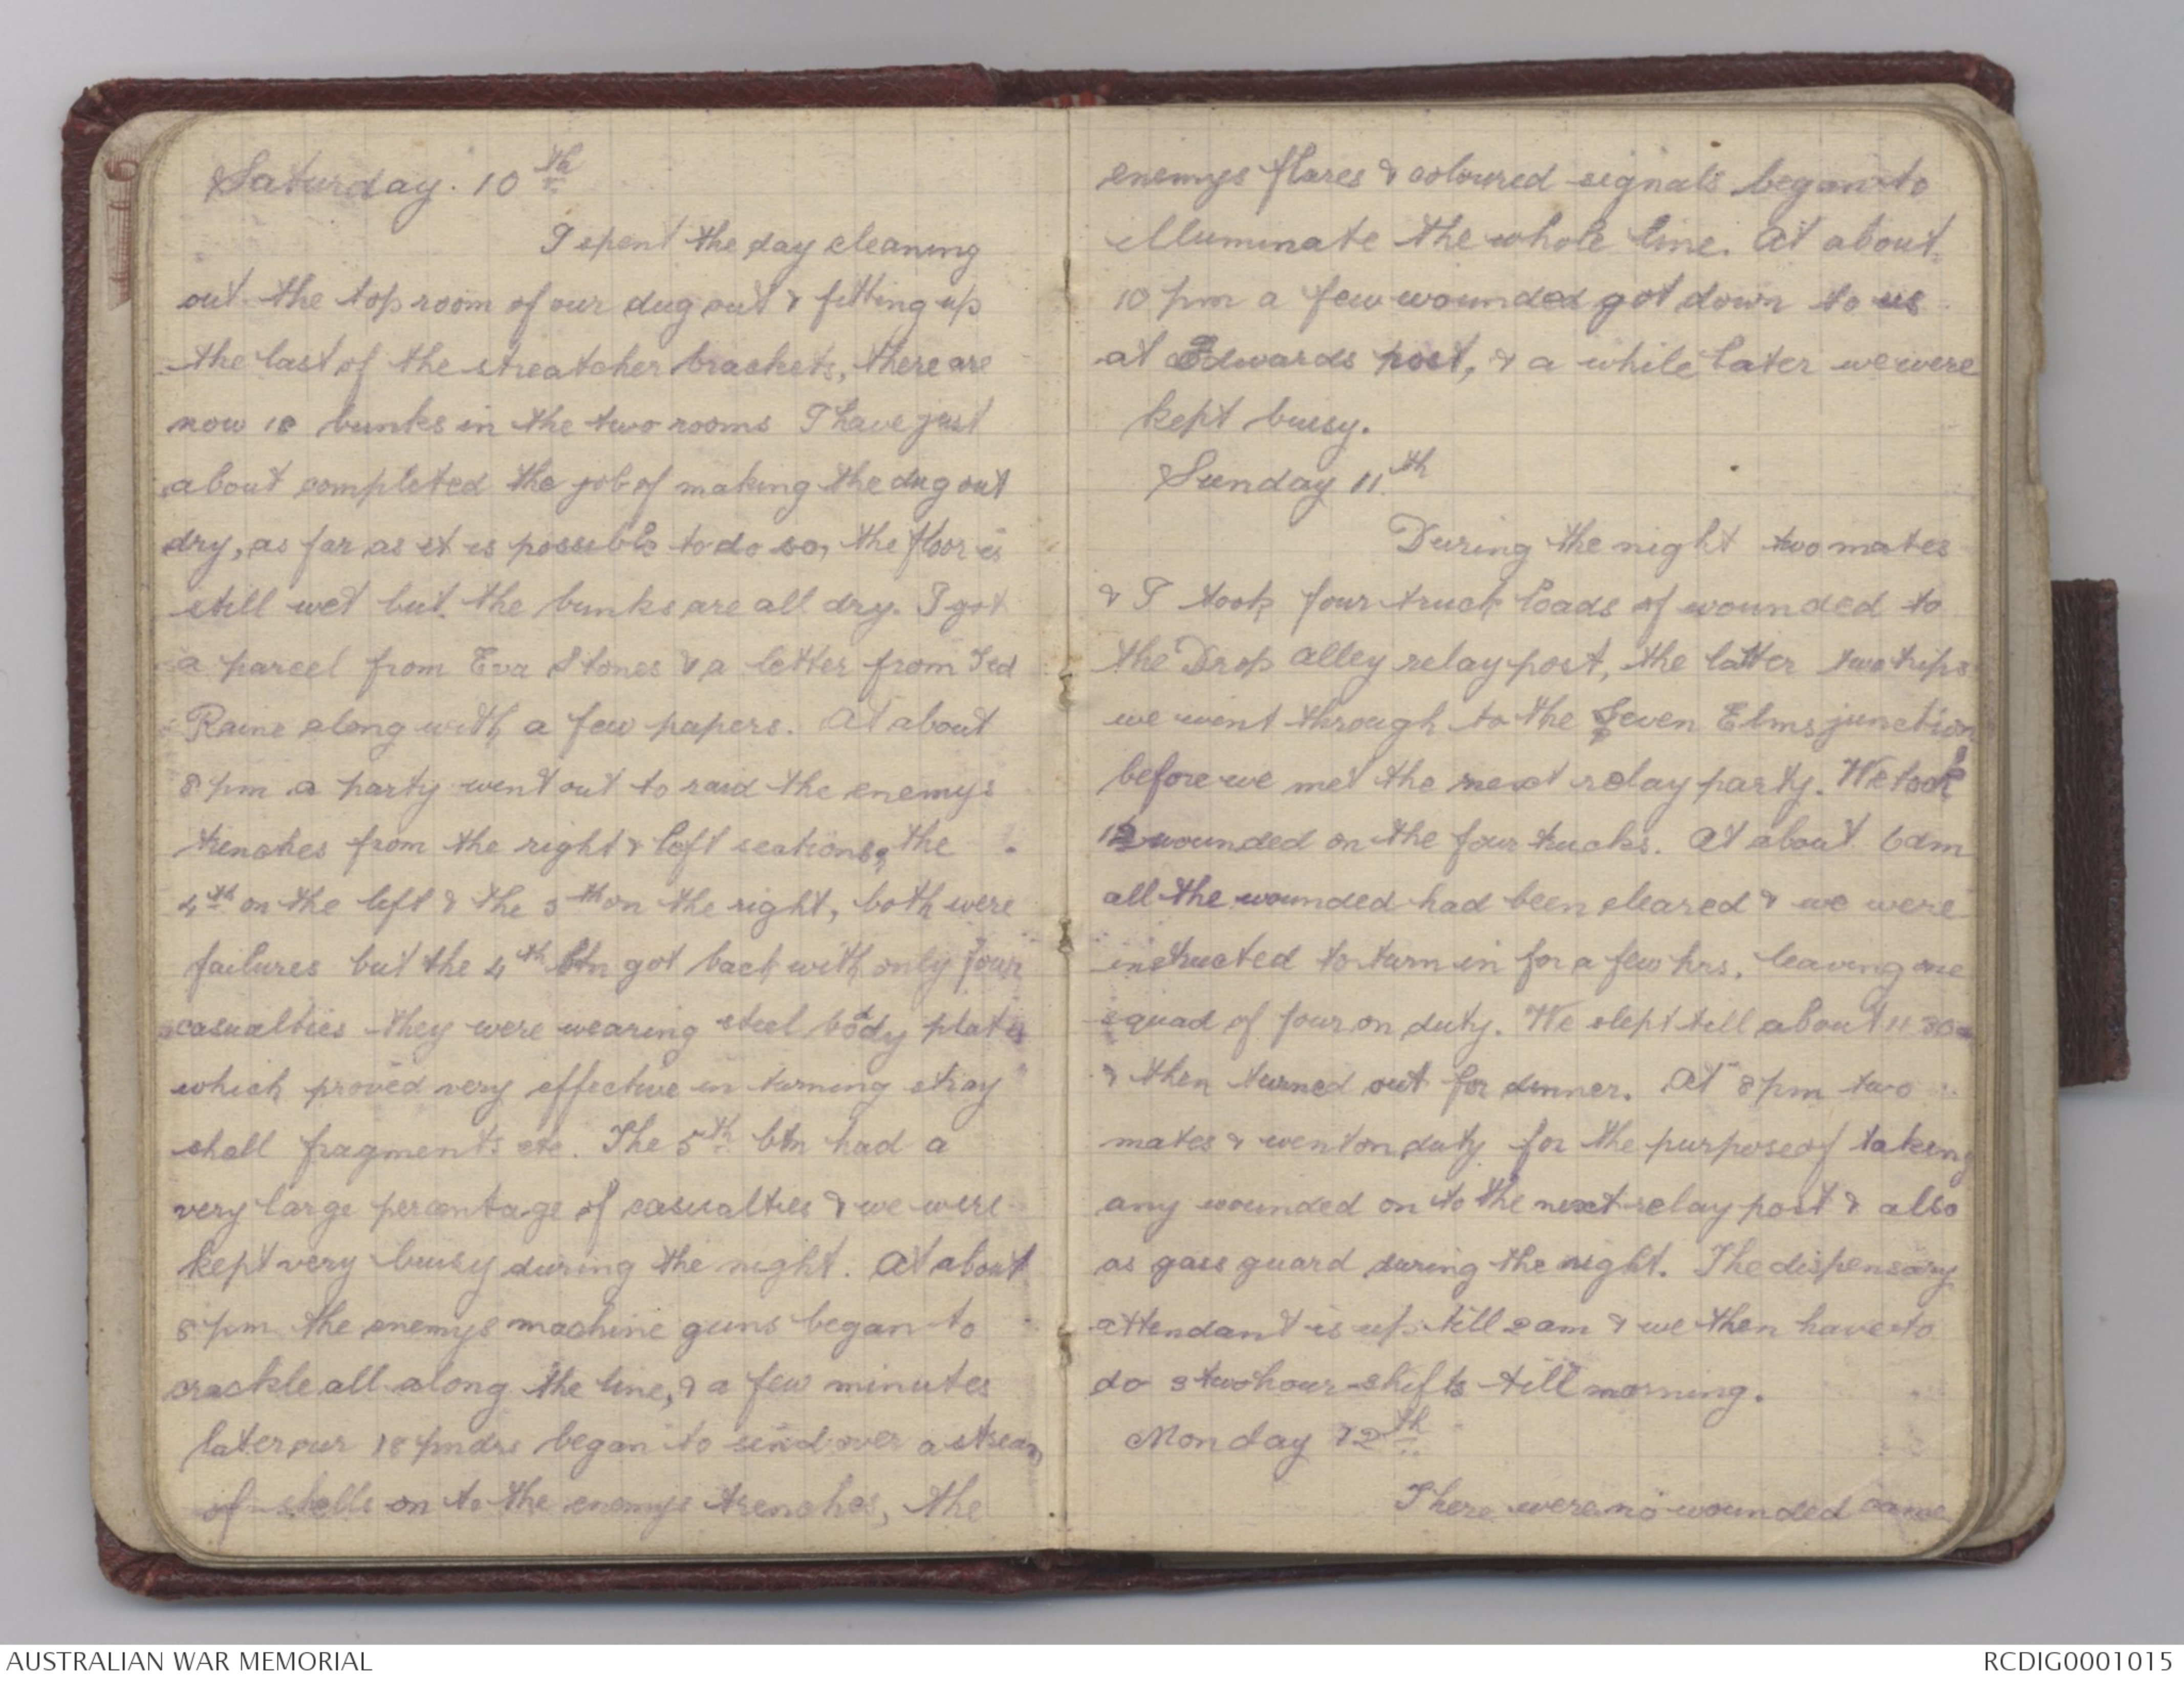 Saturday. 10th
I spent the day cleaning
out the top room of our dug out & fitting up
the last of the streatcher brackets, there are
now 18 bunks in the two rooms I have just
about completed the job of making the dug out
dry, as far as it is possible to do so, the floor is
still wet but the bunks are all dry. I got
a parcel from Eva Stones & a letter from Ted
Raine along with a few papers. At about
8 pm a party went out to raid the enemys
trenches from the right & left sections, the
4th on the left & the 5th on the right, both were
failures but the 4th btn got back with only four
casualties they were wearing steel body plates
which proved very effective in turning stray
shell fragments etc. The 5th btn had a
very large percentage of casualties & we were
kept very buisy during the night. At about
8 pm the enemys machine guns began to
crackle all along the line, & a few minutes
later our 18 pndrs began to send over a stream
of shells on to the enemys trenches, the
enemys flares & coloured signals began to
illuminate the whole line. At about
10 pm a few wounded got down to us
at Edwards post, & a while later we were
kept buisy.
Sunday 11th
During the night two mates
& I took four truck loads of wounded to
the Drop alley relay post, the latter two trips
we went through to the Seven Elms junction
before we met the next relay party. We took
12 wounded on the four trucks. At about 6 am
all the wounded had been cleared & we were
instructed to turn in for a few hrs, leaving one
squad of four on duty. We slept till about 11 30 a
& then turned out for dinner. At 8 pm two
mates & went on duty for the purpose of taking
any wounded on to the next relay post & also
as gass guard during the night. The dispensary
attendant is up till 2 am & we then have to
do 3 two hour shifts till morning.
Monday 12th
There were no wounded came
AUSTRALIAN WAR MEMORIAL
RCDIG0001015